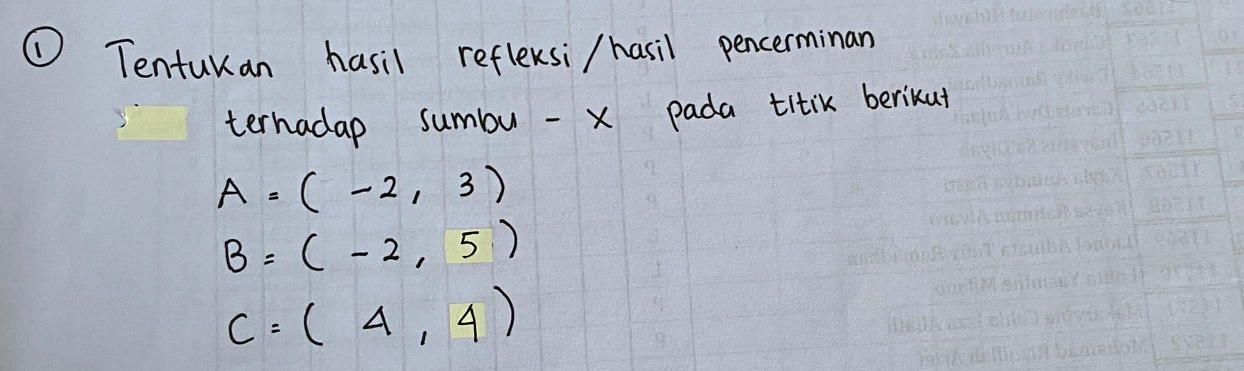 ① Tentukan hasil refleksi/hasil pencerminan
terhadap sumbu - x pada titik berikut
A = ( -2, 3)
B = ( -2, 5)
C = ( 4, 4)